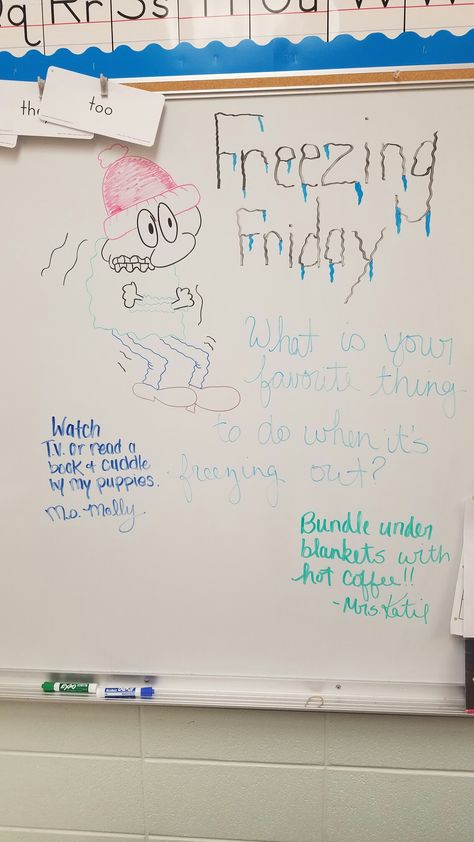 Qq Rr Ss
the
too
Freezing
Friday
What is your
favorite thing
to do when it's
freezing out?
Watch
T.V. or read a
book + cuddle
w/ my puppies.
Ms. Molly
Bundle under
blankets with
hot coffee!!
-Mrs. Katie
EXPO
EXPO